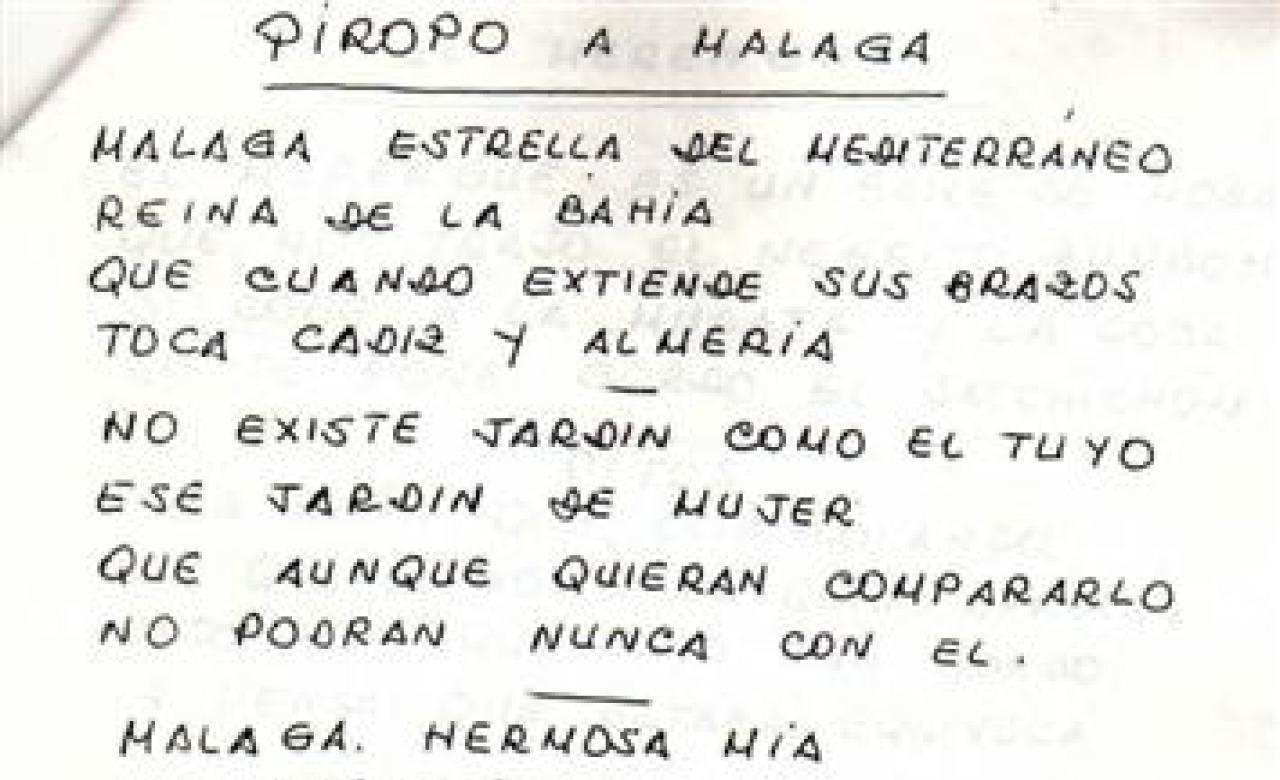 PIROPO A MALAGA
MALAGA ESTRELLA DEL MEDITERRÁNEO
REINA DE LA BAHÍA
QUE CUANDO EXTIENDE SUS BRAZOS
TOCA CADIZ Y ALMERÍA
NO EXISTE JARDIN COMO EL TUYO
ESE JARDIN DE MUJER
QUE AUNQUE QUIERAN COMPARARLO
NO PODRAN NUNCA CON EL.
MALAGA. HERMOSA MÍA